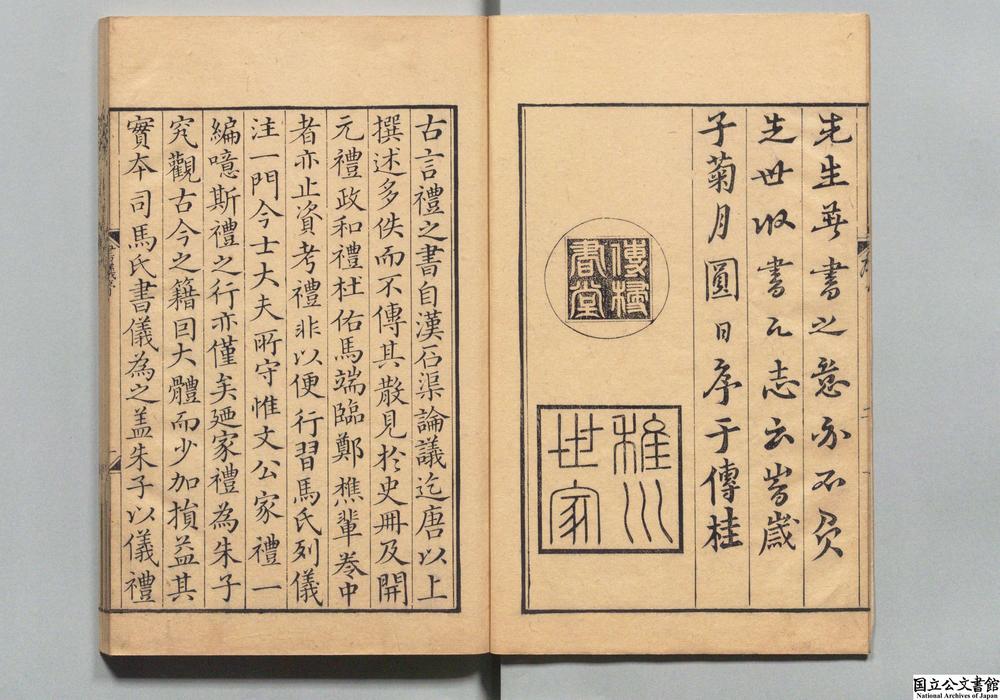 先生著書之意亦不負
先世收書之志云旹歲
子菊月圓日序于傳桂
傳桂
書堂
稚川
世家
古言禮之書自漢石渠論議迄唐以上
撰述多佚而不傳其散見於史冊及開
元禮政和禮杜佑馬端臨鄭樵輩卷中
者亦止資考禮非以便行習馬氏列儀
注一門今士大夫所守惟文公家禮一
編噫斯禮之行亦僅矣廼家禮為朱子
究觀古今之籍因大體而少加損益其
實本司馬氏書儀為之盖朱子以儀禮
国立公文書館
National Archives of Japan